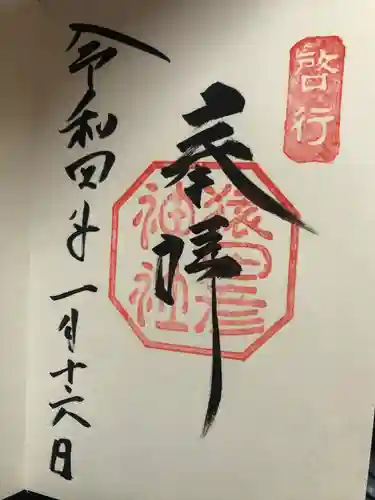 啓行
奉拝
猿田彦
神社
令和四年一月十六日